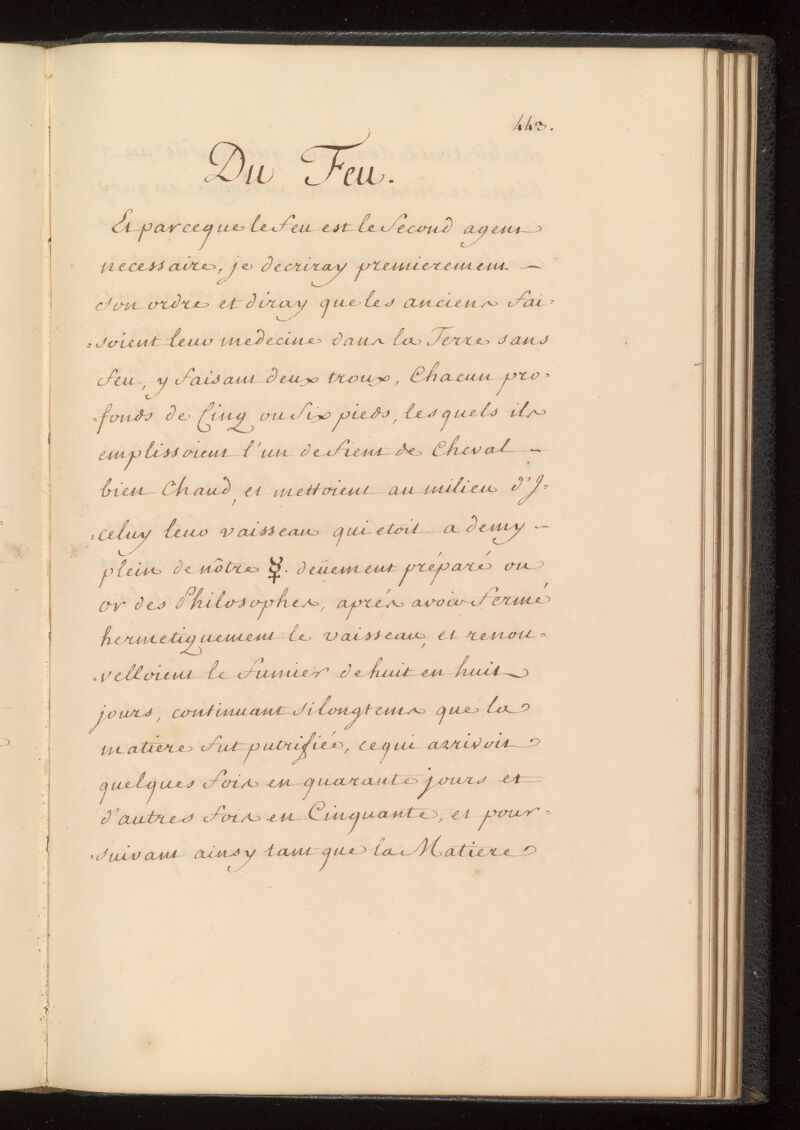 443.
Du Feu.
Et parceque le feu est le Second agent
necessaire, je decriray premierement —
son ordre et diray que les anciens fai=
=soient leur medecine dans la Terre sans
feu, y faisant deux troux, Chacun pro=
=fonds de Cinq ou Six pieds, lesquels ils
emplissoient l'un de fient de Cheval —
bien Chaud, et mettoient au milieu d'J=
=celuy leur vaisseau qui etoit a demy —
plein de nôtre ☿. deüement préparé ou
or des Philosophes, aprés avoir fermé
hermetiquement le vaisseau, et renou=
=velloient le fumier de huit en huit
jours, continuant si longtems que la
matiere fut putrifiée, ce qui arrivoit
quelques fois en quarante jours et
d'autres fois en Cinquante, et pour=
=suivant ainsy tant que la Matiere